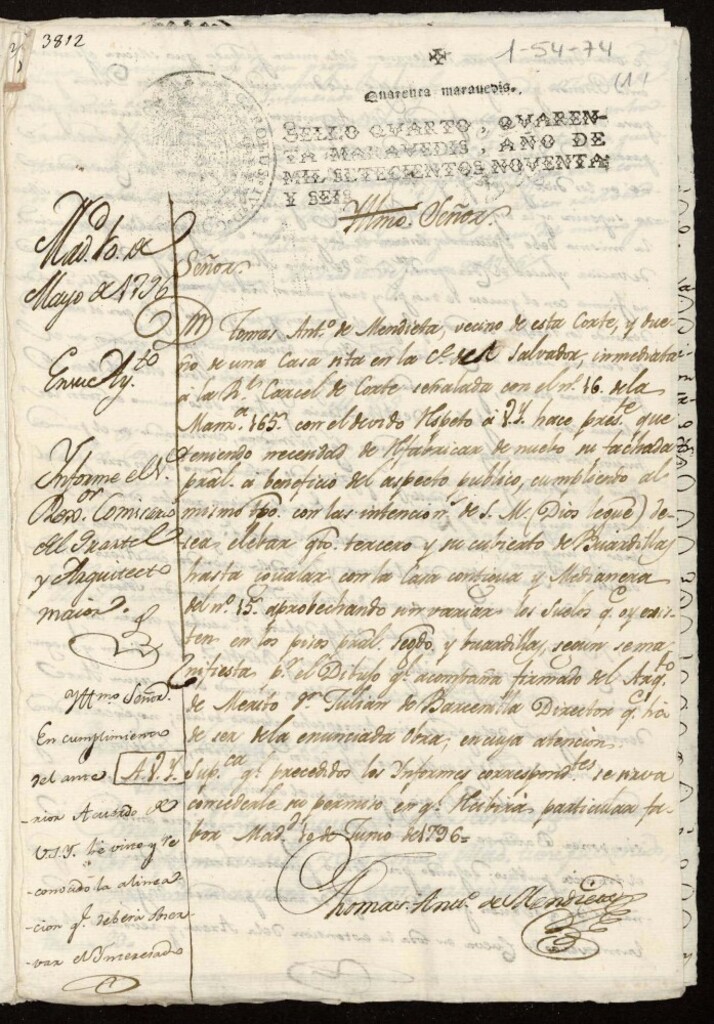 3812
1-54-74
(1)
Quarenta maravedis.
SELLO QVARTO, QVAREN-
TA MARAVEDIS, AÑO DE
MIL SETECIENTOS NOVENTA
Y SEIS
Yllmo. Señor.
Mad.d 10. de
Mayo de 1796
En su Ay.to
Informe el S.
Rex.or Comisario
del Quartel
y Arquitecto
maior.
Señor.
Tomas Ant.o de Mendieta, vecino de esta Corte, y due-
ño de una Casa sita en la C.e del Salvador, inmediata
à la R.l Carcel de Corte señalada con el n.o 16. de la
Manz.a 165. con el devido Respeto à V.Y. hace pres.te que
teniendo necesidad de Refabricar de nuebo su fachada
pral. à beneficio del aspecto publico, cumpliendo al
mismo tpo. con las intencion.s de S. M. (Dios legue) de-
sea elebar qto. tercero y su cubierto de Buardillas
hasta igualar con la Casa contigua y Medianera
del n.o 15. aprobechando sin variar los Suelos q.e oy exis-
ten en los pisos pral. segdo. y buardillas, segun se ma-
nifiesta p.r el Dibujo q.e acompaña firmado del Arq.to
de Merito D.n Julian de Barcenilla Director q.e hà
de ser de la enunciada obra; en cuya atencion.
A.V.Y. Sup.ca q.e precedidos los Informes correspond.tes se sirva
concederle su permiso en q.e Recibirà particular fa-
bor Mad.d 10 de Junio de 1796=
Thomas Ant.o de Mendieta
Yllmo. Señor.
En cumplimiento
del ante
rior Acuerdo de
V.S.Y. he visto y re
-conocido la alinea
-cion q.e deberà obser
-var el Interesado